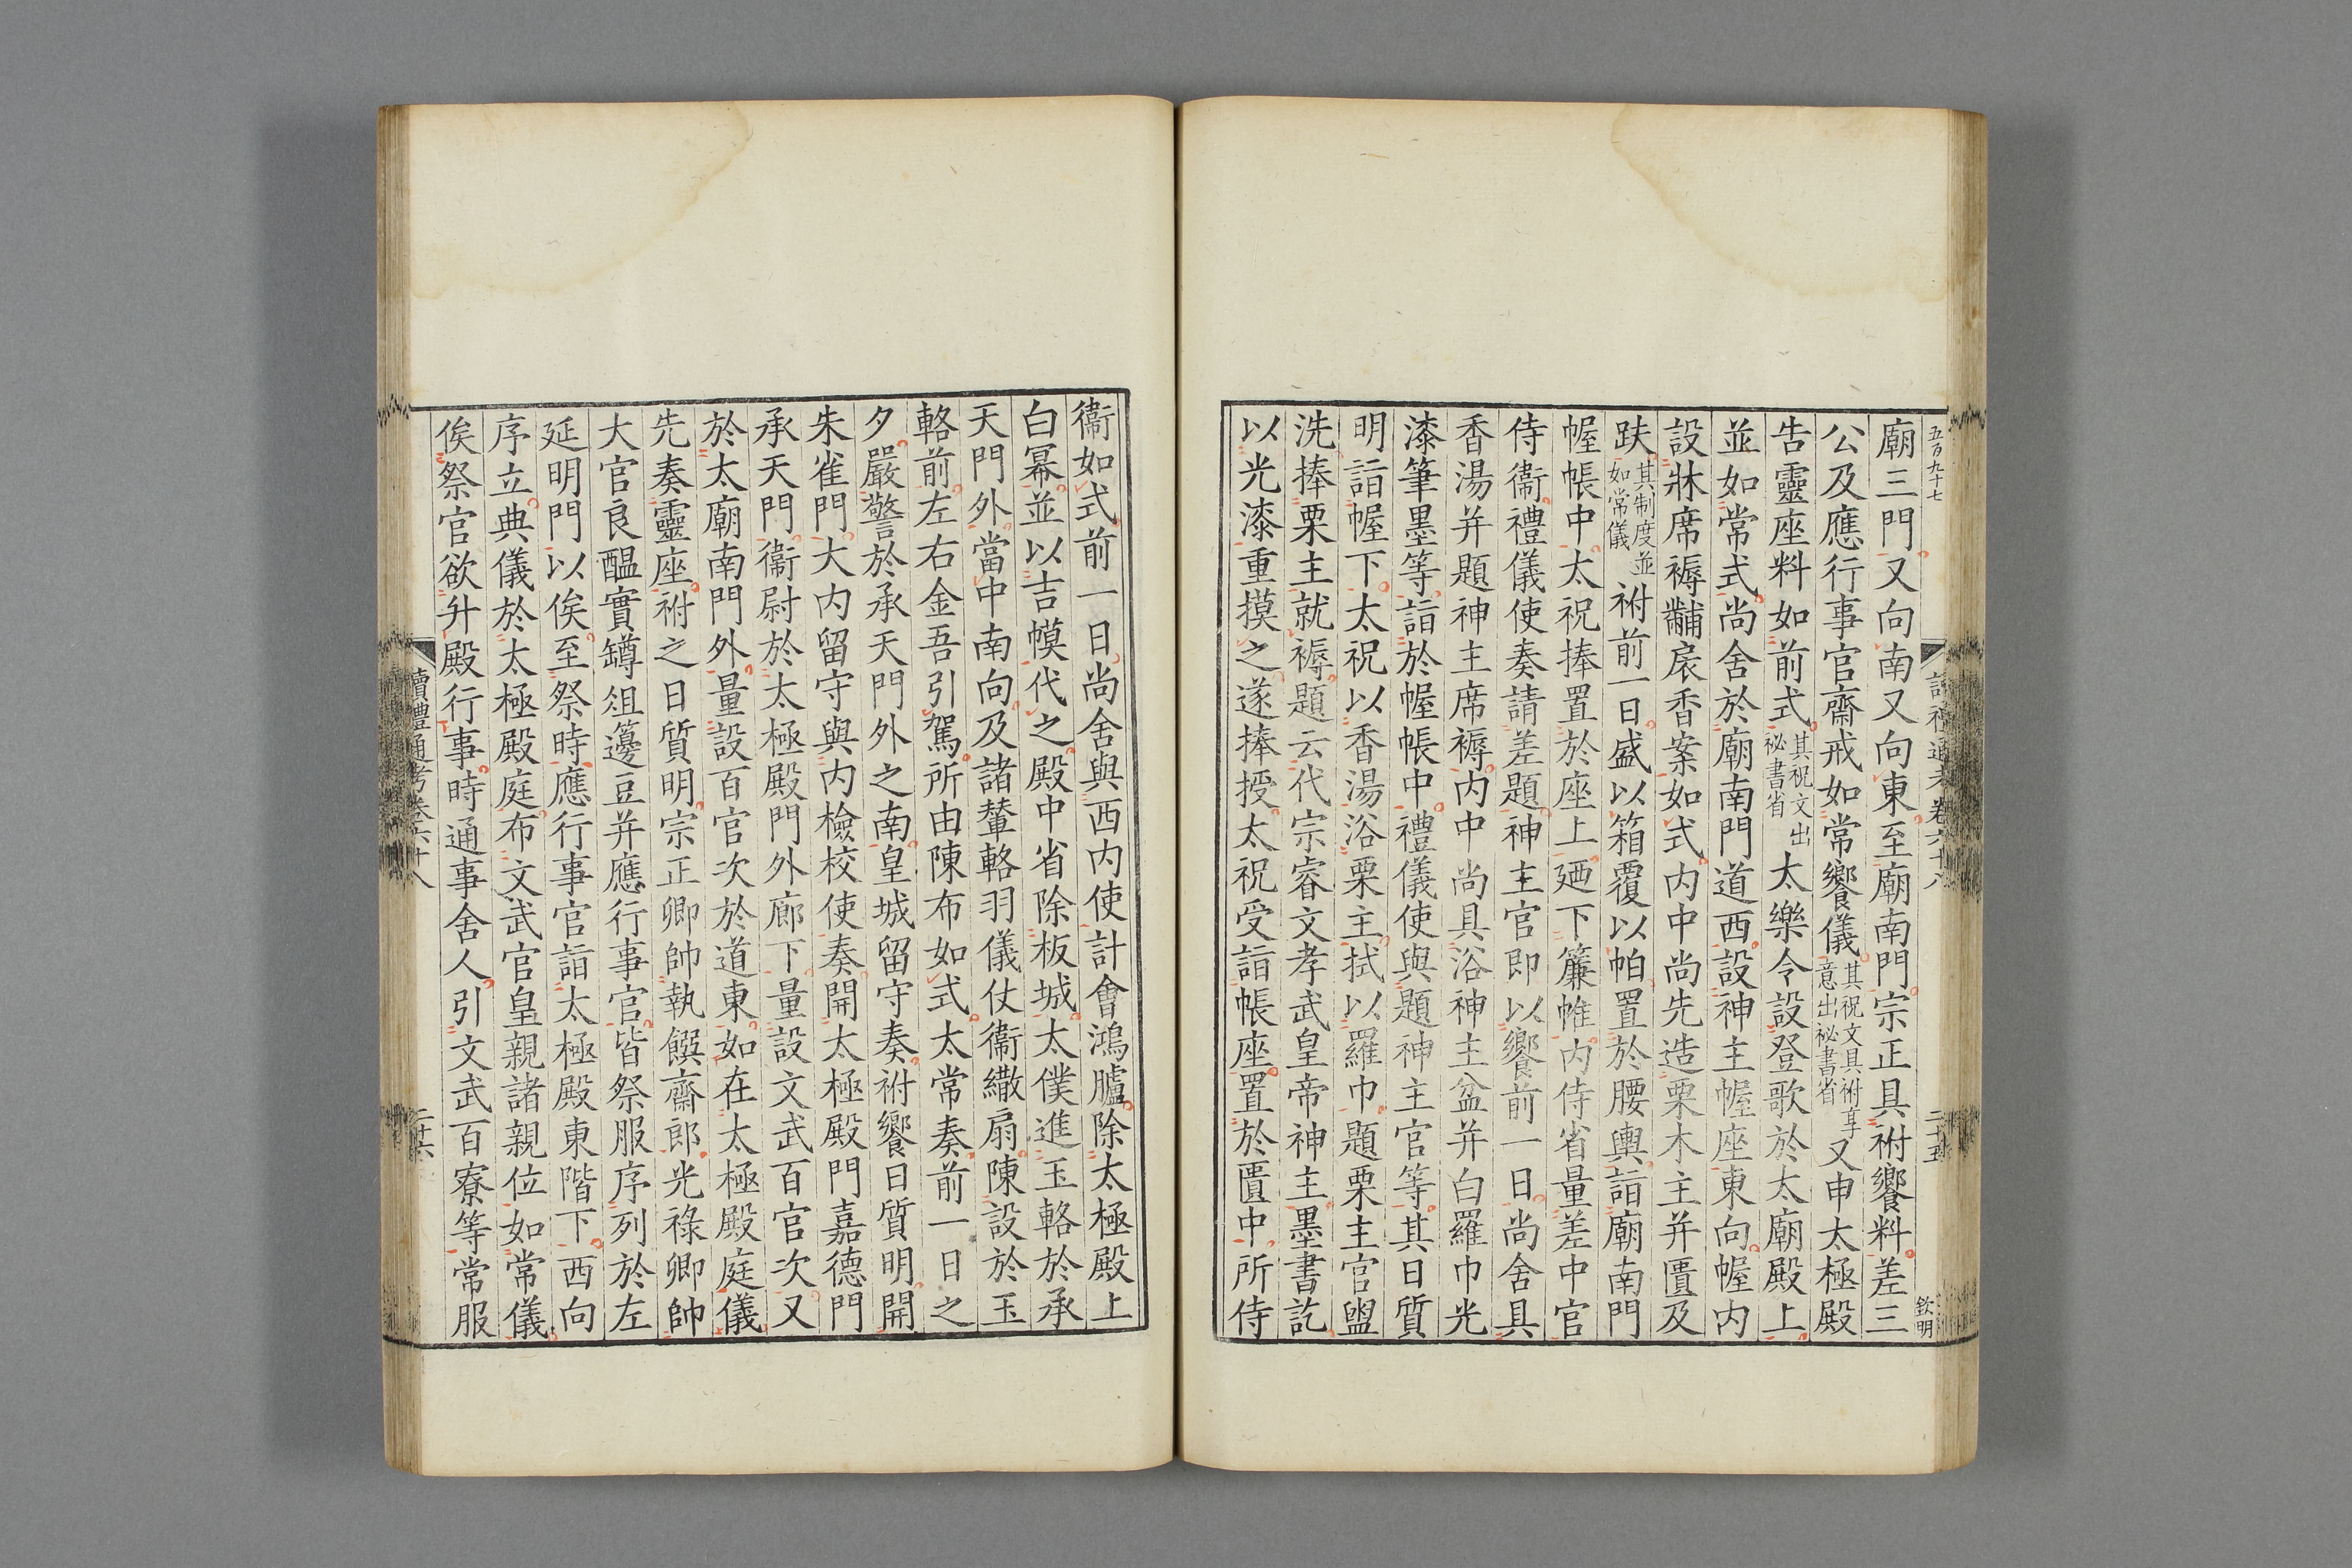 五百九十七
讀禮通考卷六十八
二十五
欽明
廟三門又向南又向東至廟南門宗正具祔饗料差三
公及應行事官齋戒如常饗儀其祝文具祔享意出祕書省又申太極殿
告靈座料如前式其祝文出祕書省太樂令設登歌於太廟殿上
並如常式尚舍於廟南門道西設神主幄座東向幄內
設牀席褥黼扆香案如式內中尚先造栗木主并匱及
趺其制度並如常儀祔前一日盛以箱覆以帕置於腰輿詣廟南門
幄帳中太祝捧置於座上廼下簾帷內侍省量差中官
侍衞禮儀使奏請差題神主官即以饗前一日尚舍具
香湯并題神主席褥內中尚具浴神主盆并白羅巾光
漆筆墨等詣於幄帳中禮儀使與題神主官等其日質
明詣幄下太祝以香湯浴栗主拭以羅巾題栗主官盥
洗捧栗主就褥題云代宗睿文孝武皇帝神主墨書訖
以光漆重摸之遂捧授太祝受詣帳座置於匱中所侍
衞如式前一日尚舍與西內使計會鴻臚除太極殿上
白幂並以吉幙代之殿中省除板城太僕進玉輅於承
天門外當中南向及諸輦輅羽儀仗衞繖扇陳設於玉
輅前左右金吾引駕所由陳布如式太常奏前一日之
夕嚴警於承天門外之南皇城留守奏祔饗日質明開
朱雀門大內留守與內檢校使奏開太極殿門嘉德門
承天門衞尉於太極殿門外廊下量設文武百官次又
於太廟南門外量設百官次於道東如在太極殿庭儀
先奏靈座祔之日質明宗正卿帥執饌齋郎光祿卿帥
大官良醞實罇俎籩豆并應行事官皆祭服序列於左
延明門以俟至祭時應行事官詣太極殿東階下西向
序立典儀於太極殿庭布文武官皇親諸親位如常儀
俟祭官欲升殿行事時通事舍人引文武百寮等常服
讀禮通考卷六十八
二十六